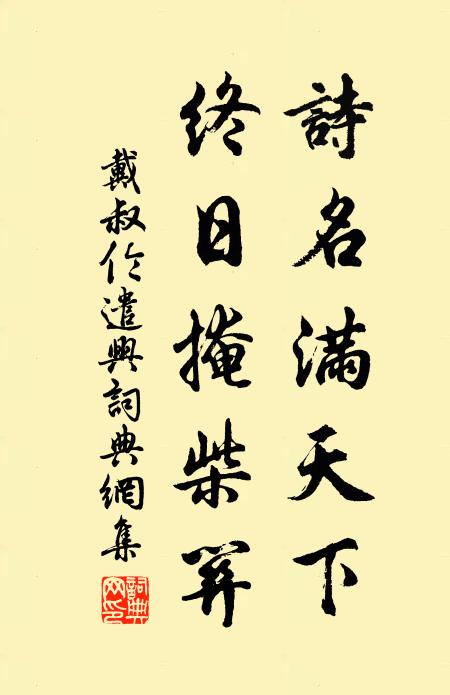 詩名滿天下
終日掩柴關
戴叔伦遣興詞典網集
詞典
网印